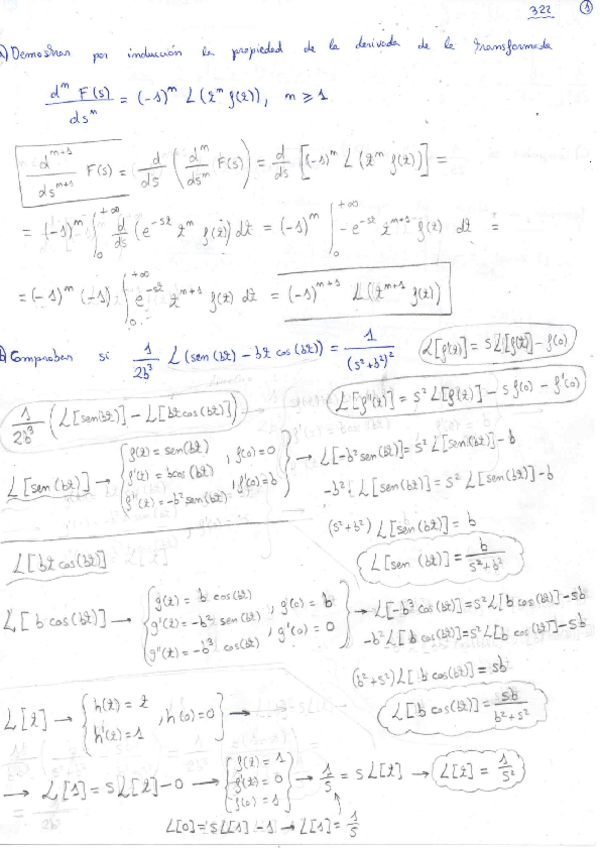 322 1
a) Demostrar por inducción la propiedad de la derivada de la transformada
d^m F(s) / ds^m = (-1)^m L(t^m f(t)), m ≥ 1
d^{m+1} / ds^{m+1} F(s) = d/ds (d^m/ds^m F(s)) = d/ds [(-1)^m L(t^m f(t))] =
= (-1)^m ∫_0^{+∞} d/ds (e^{-st} t^m f(t)) dt = (-1)^m ∫_0^{+∞} -e^{-st} t^{m+1} f(t) dt =
= (-1)^m (-1) ∫_0^{+∞} e^{-st} t^{m+1} f(t) dt = (-1)^{m+1} L(t^{m+1} f(t))
b) Comprobar si 1/2b^3 L(sen(bt) - bt cos(bt)) = 1/(s^2+b^2)^2
L[f'(t)] = s L[f(t)] - f(0)
L[f''(t)] = s^2 L[f(t)] - s f(0) - f'(0)
1/2b^3 (L[sen(bt)] - L[bt cos(bt)])
L[sen(bt)] → { f(t) = sen(bt) , f(0) = 0
f'(t) = b cos(bt) , f'(0) = b
f''(t) = -b^2 sen(bt) } → L[-b^2 sen(bt)] = s^2 L[sen(bt)] - b
-b^2 L[sen(bt)] = s^2 L[sen(bt)] - b
(s^2+b^2) L[sen(bt)] = b
L[sen(bt)] = b / s^2+b^2
L[bt cos(bt)]
L[b cos(bt)] → { g(t) = b cos(bt)
g'(t) = -b^2 sen(bt) , g(0) = b
g''(t) = -b^3 cos(bt) , g'(0) = 0 } → L[-b^3 cos(bt)] = s^2 L[b cos(bt)] - sb
-b^2 L[b cos(bt)] = s^2 L[b cos(bt)] - sb
(b^2+s^2) L[b cos(bt)] = sb
L[b cos(bt)] = sb / b^2+s^2
L[t] → { h(t) = t
h'(t) = 1 , h(0) = 0 } →
→ L[1] = s L[t] - 0 → { f(t) = 1
f'(t) = 0
f(0) = 1 } → 1/s = s L[t] → L[t] = 1/s^2
L[0] = s L[1] - 1 → L[1] = 1/s